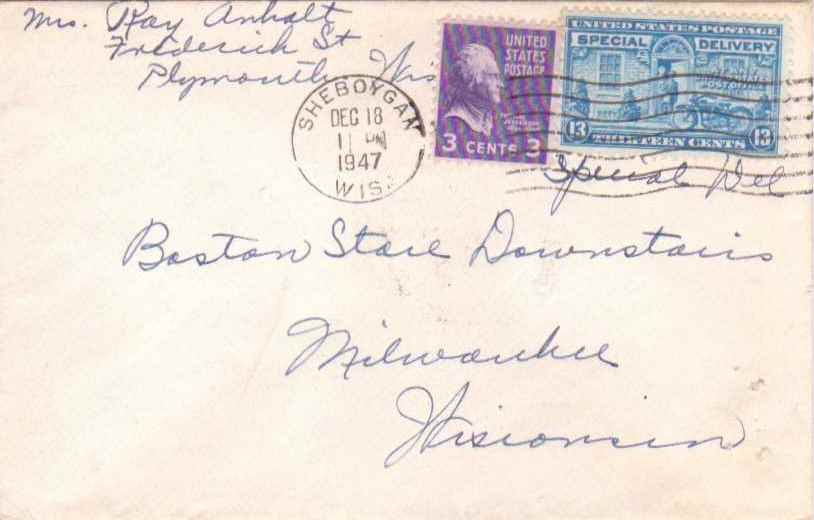 Mrs. Ray Anhalt
Frederick St
Plymouth, Wis
SHEBOYGAN
DEC 18
11 PM
1947
WIS.
UNITED
STATES
POSTAGE
3 CENTS 3
UNITED STATES POSTAGE
SPECIAL DELIVERY
13 THIRTEEN CENTS 13
Special Del
Boston Store Downstairs
Milwaukee
Wisconsin